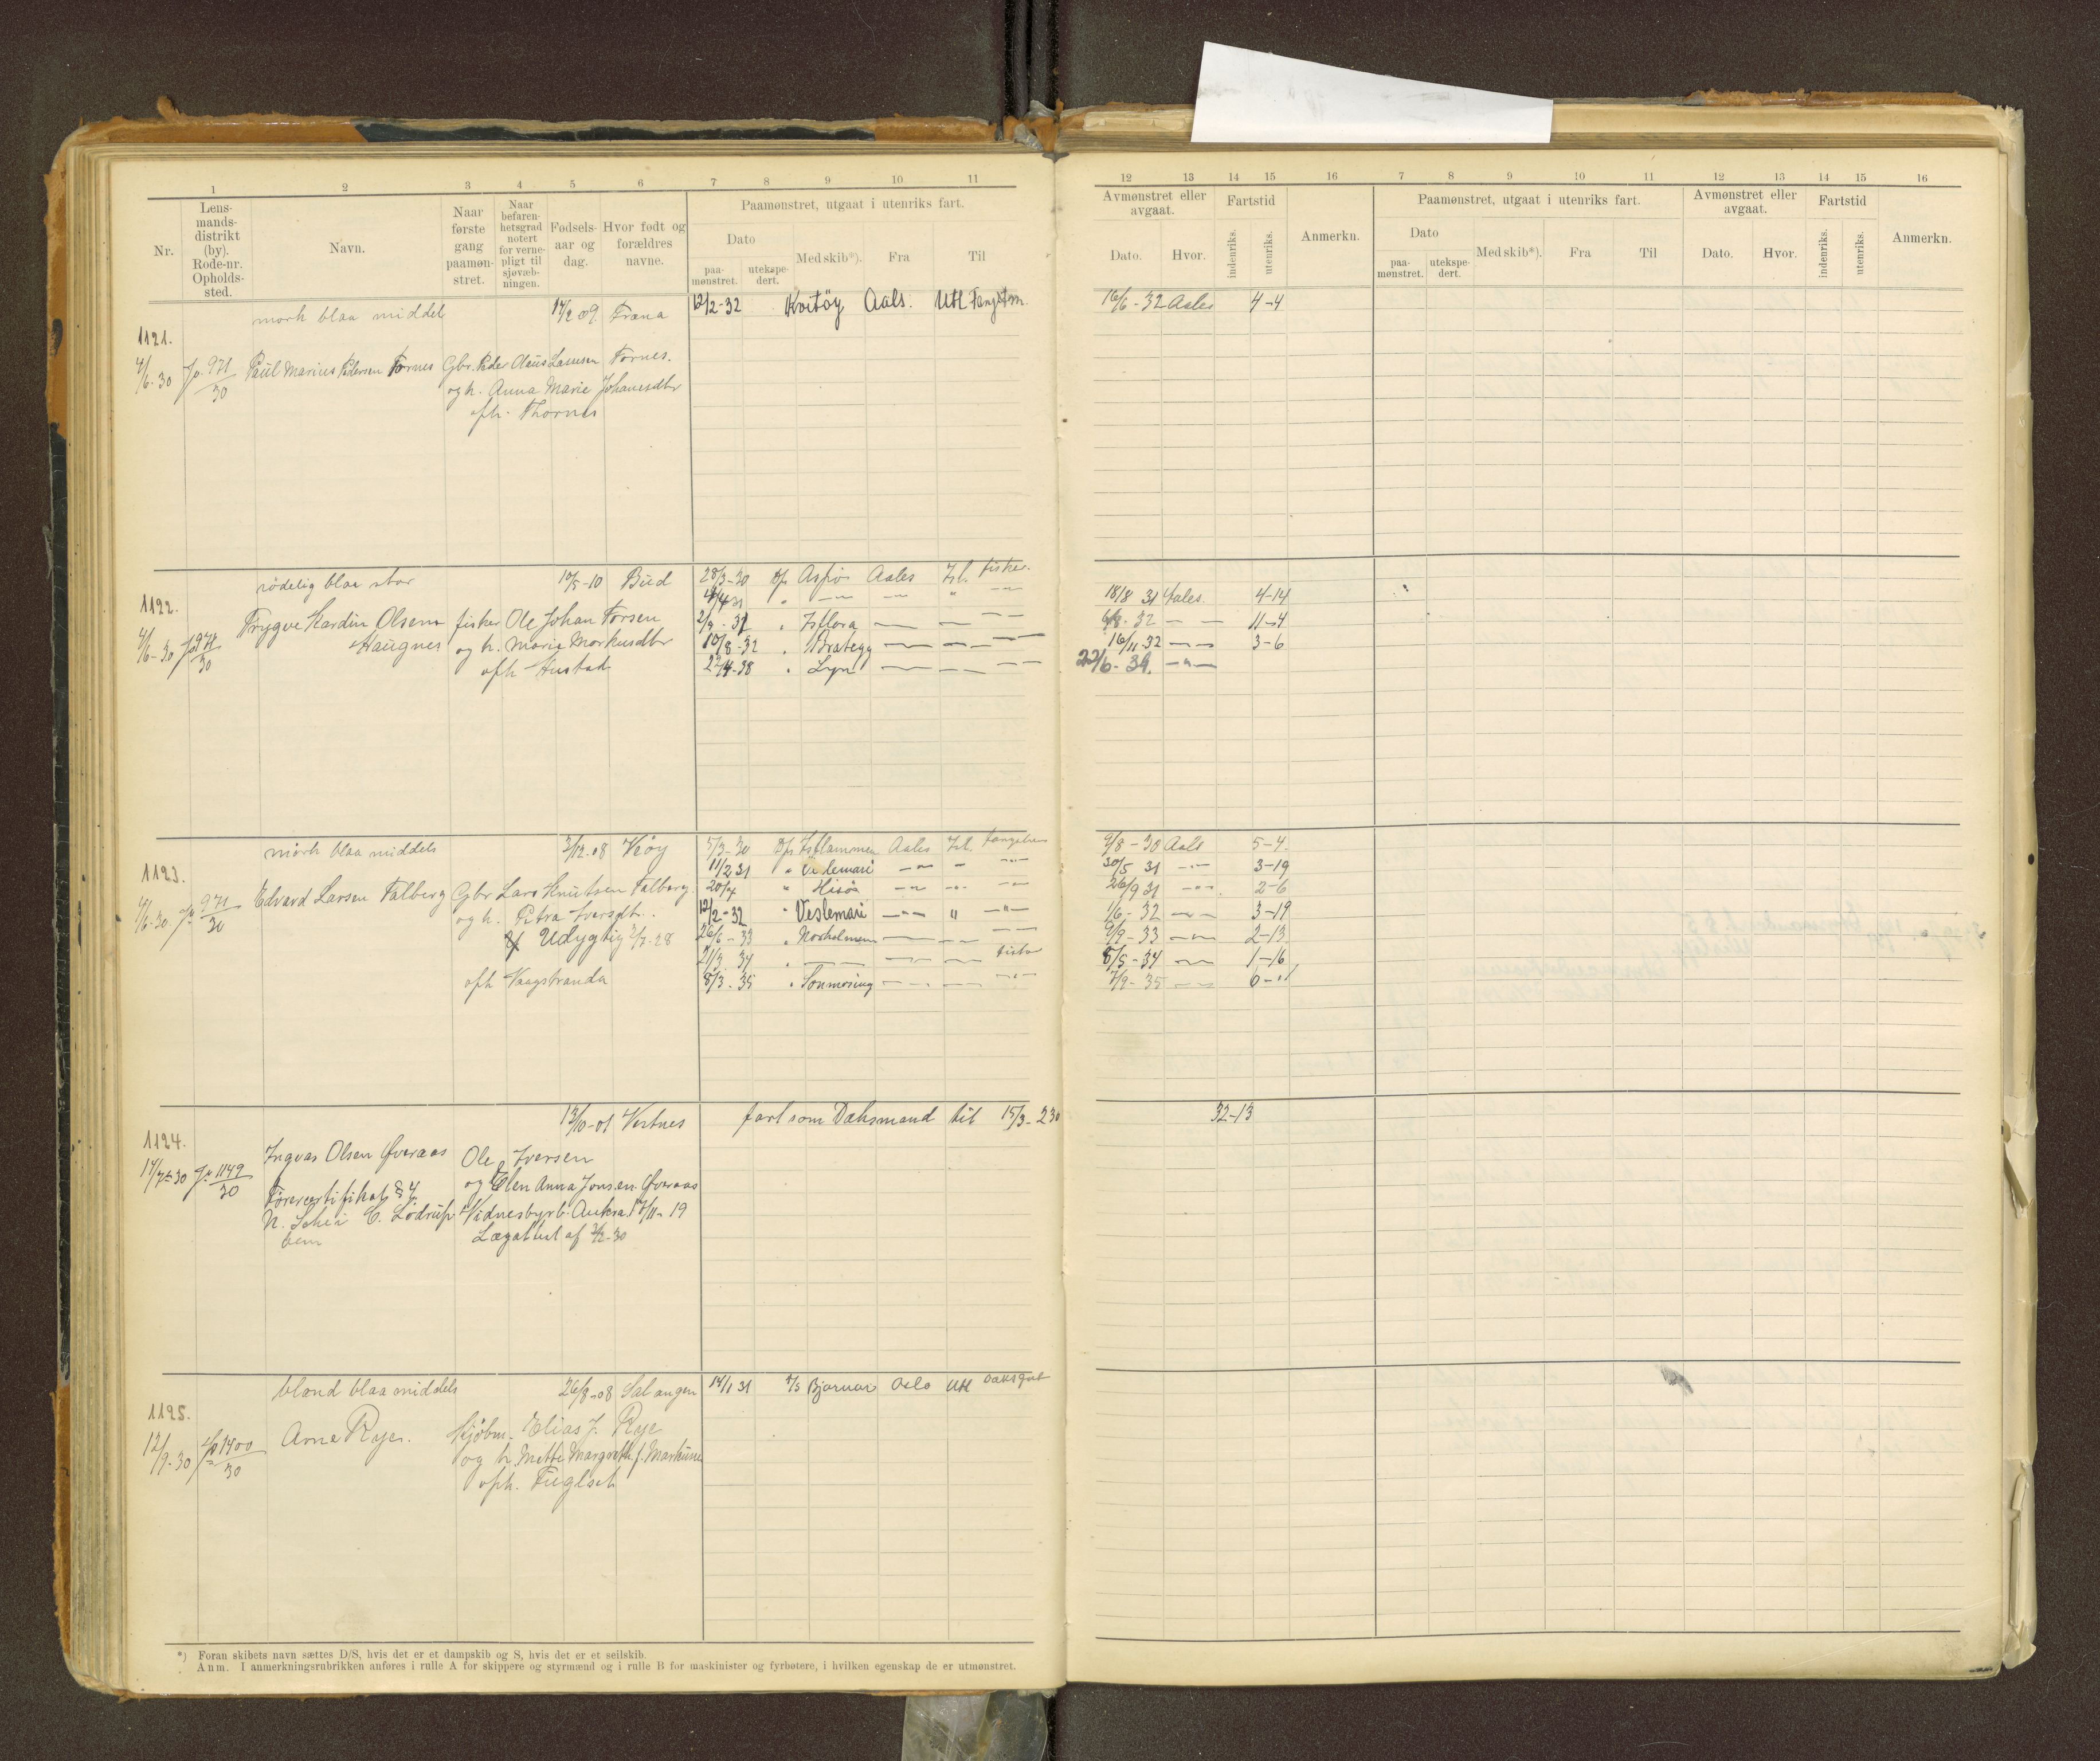 1 2 3 4 5 6 7 8 9 10 11
Nr.
Lens-
mands-
distrikt
(by).
Rode-nr.
Opholds-
sted.
Navn.
Naar
første
gang
paamøn-
stret.
Naar
befaren-
hetsgrad
notert
for verne-
pligt til
sjøvæb-
ningen.
Fødsels-
aar og
dag.
Hvor født og
forældres
navne.
Paamønstret, utgaat i utenriks fart.
Dato
paa-
mønstret.
utekspe-
dert.
Med skib*).
Fra
Til
12 13 14 15 16 7 8 9 10 11 12 13 14 15 16
Avmønstret eller
avgaat.
Dato.
Hvor.
Fartstid
indenriks.
utenriks.
Anmerkn.
Paamønstret, utgaat i utenriks fart.
Dato
paa-
mønstret.
utekspe-
dert.
Med skib*).
Fra
Til
Avmønstret eller
avgaat.
Dato.
Hvor.
Fartstid
indenriks.
utenriks.
Anmerkn.
mørk blaa middel 17/2 09. Fræna 12/2-32 Kvitöy Aals. Utl Fangstm. 16/6-32 Aales 4-4
1121.
4/6-30 Jo 971/30 Paul Marius Pedersen Fornes Gbr. Peder Olaus Larssen Fornes.
og h. Anna Marie Johanesdtr
oph. Thornes
rödelig blaa stor 10/5-10 Bud 28/3-30 D/s Aspö Aales Isl. fisker.
1122. 18/8 31 Aales 4-14
Trygve Hardin Olsen fisker Ole Johan Torsen 31 " Isflora 6/8-32 11-4
4/6-30 Jo 971/30 Haugnes og h. Marie Markusdtr 10/8-32 " Brategg 16/11-32 3-6
oph Hustad 22/4-38 " Lyn 22/6-39.
mörk blaa middels 3/12.08 Veöy 5/3-30 D/s Isflammen Aales Isl. fangstm 9/8-30 Aals 5-4
1123. 11/2 31 " Veslemari 30/5 31 3-19
4/6.30 Jo 971/30 Edvard Larsen Talberg Gbr Lars Knutsen Talberg. 20/7 " Hisöa 26/9 31 2-6
og h. Petra Iversdtr. 12/2-32 " Veslemari 1/6-32 3-19
Udygtig 2/7-28 26/6-33 " Nosholmen 9/9-33 2-13
21/3 34 fisker 8/5-34 1-16
oph Vaagstranda 8/3-35 " Sonmöring 7/9-35
13/10-01 Vestnes fart som Dæksmand til 15/3-230 32-13
1124.
14/7-30 Jo 1149/30 Ingvar Olsen Øveraas Ole Iversen
og Elen Anna Jonsen Øveraas
Förercertifikat § 4 Vidnesbyrd Aukra 17/11-19
N. Schei C. Lödrup Lægattest af 3/2-30
blond blaa middels 26/8-08 Salangen 14/1 31 Bjarnar Oslo Utl Dæksgut
1125.
12/9-30 Jo 1400/30 Arne Rye. Kjöbm. Elias J. Rye
og h. Mette Margreth f. Markusen
oph. Fuglset
*) Foran skibets navn sættes D/S, hvis det er et dampskib og S, hvis det er et seilskib.
Anm. I anmerkningsrubrikken anføres i rulle A for skippere og styrmænd og i rulle B for maskinister og fyrbøtere, i hvilken egenskap de er utmønstret.